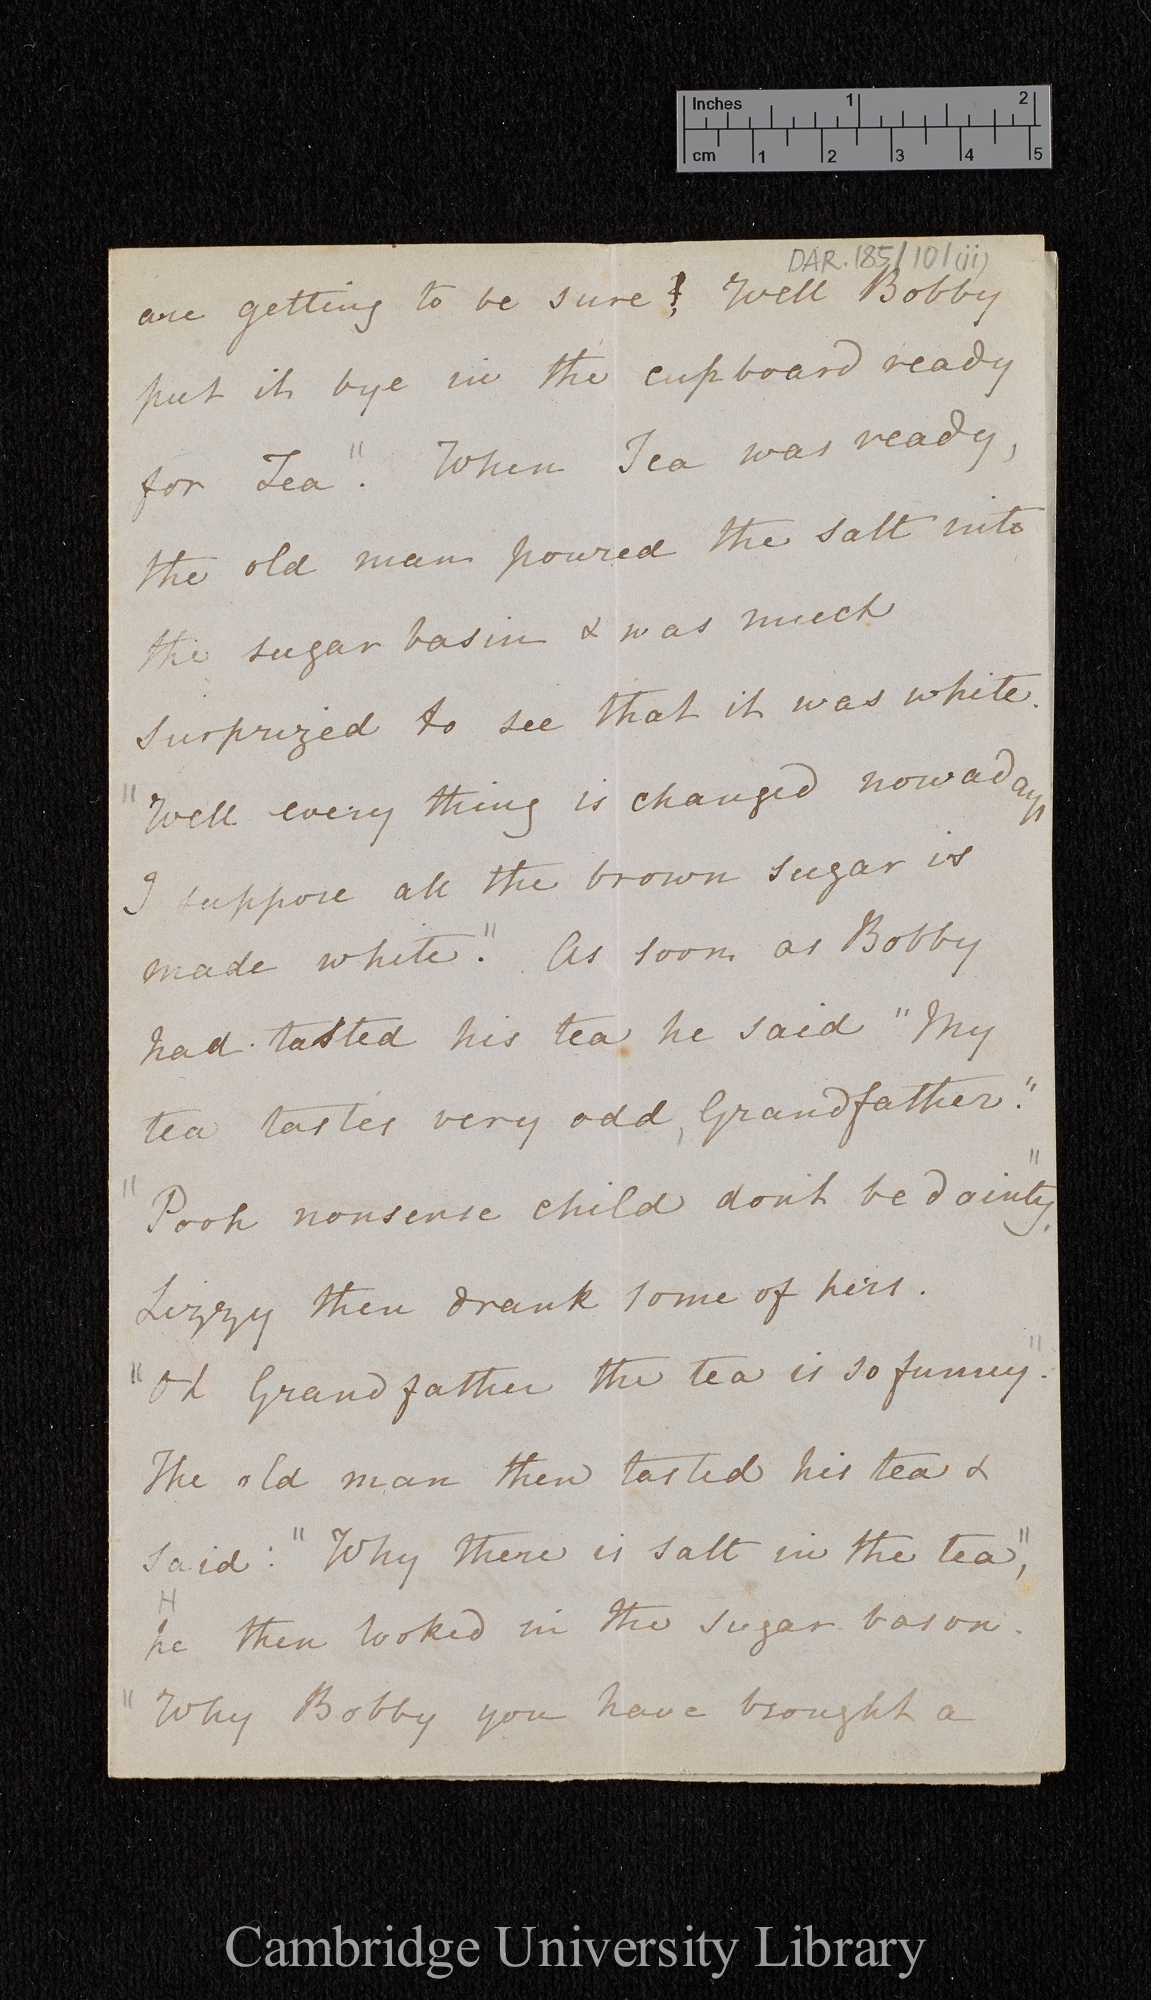 Inches 1 2
cm 1 2 3 4 5
DAR.185/10/(ii)
are getting to be sure! Well Bobby
put it bye in the cupboard ready
for Tea". When Tea was ready,
the old man poured the salt into
the sugar basin & was much
surprized to see that it was white.
"Well every thing is changed nowadays
I suppose all the brown sugar is
made white". As soon as Bobby
had tasted his tea he said "My
tea tastes very odd, Grandfather."
"Pooh nonsense child don't be dainty".
Lizzy then drank some of hers.
"Oh Grandfather the tea is so funny".
The old man then tasted his tea &
said: "Why there is salt in the tea",
H
he then looked in the sugar bason.
"Why Bobby you have brought a
Cambridge University Library